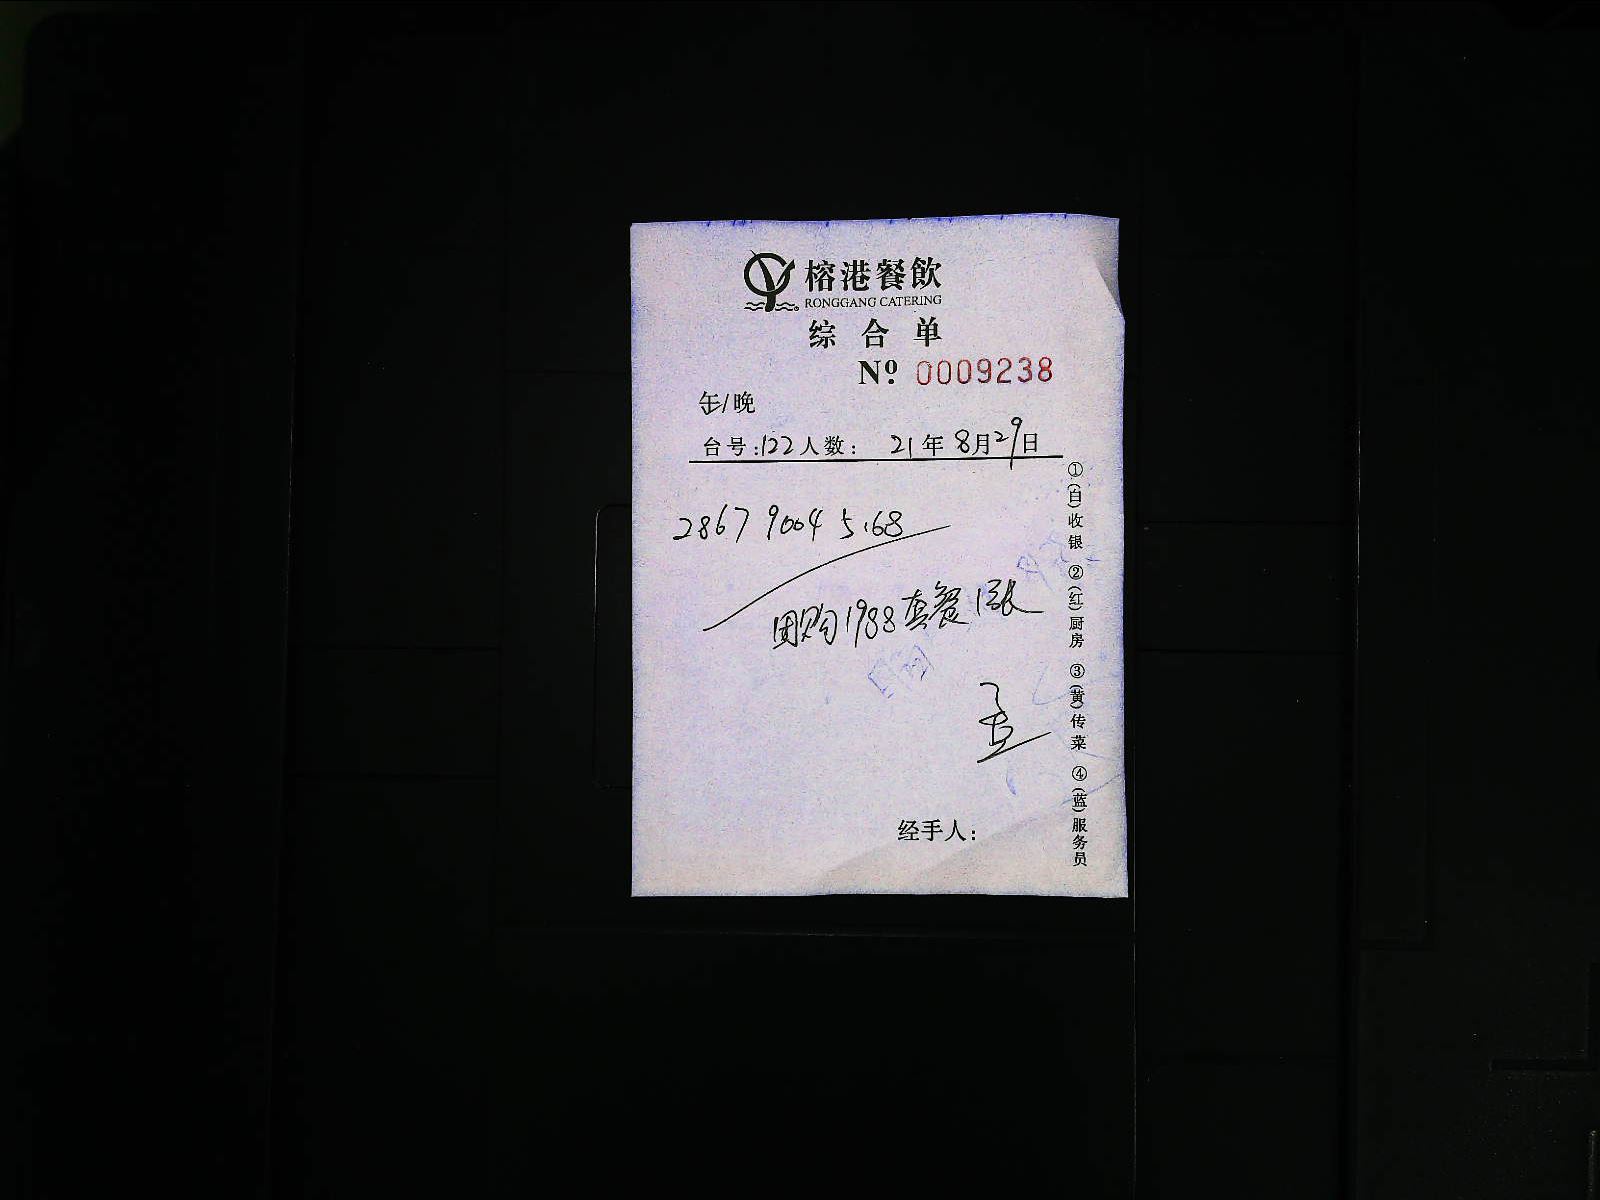 榕港餐飲
RONGGANG CATERING
综合单
Nº 0009238
午/晚
台号:122人数: 21年8月29日
2867 9004 5168
团购1988套餐1张
经手人:
①(白)收银 ②(红)厨房 ③(黄)传菜 ④(蓝)服务员